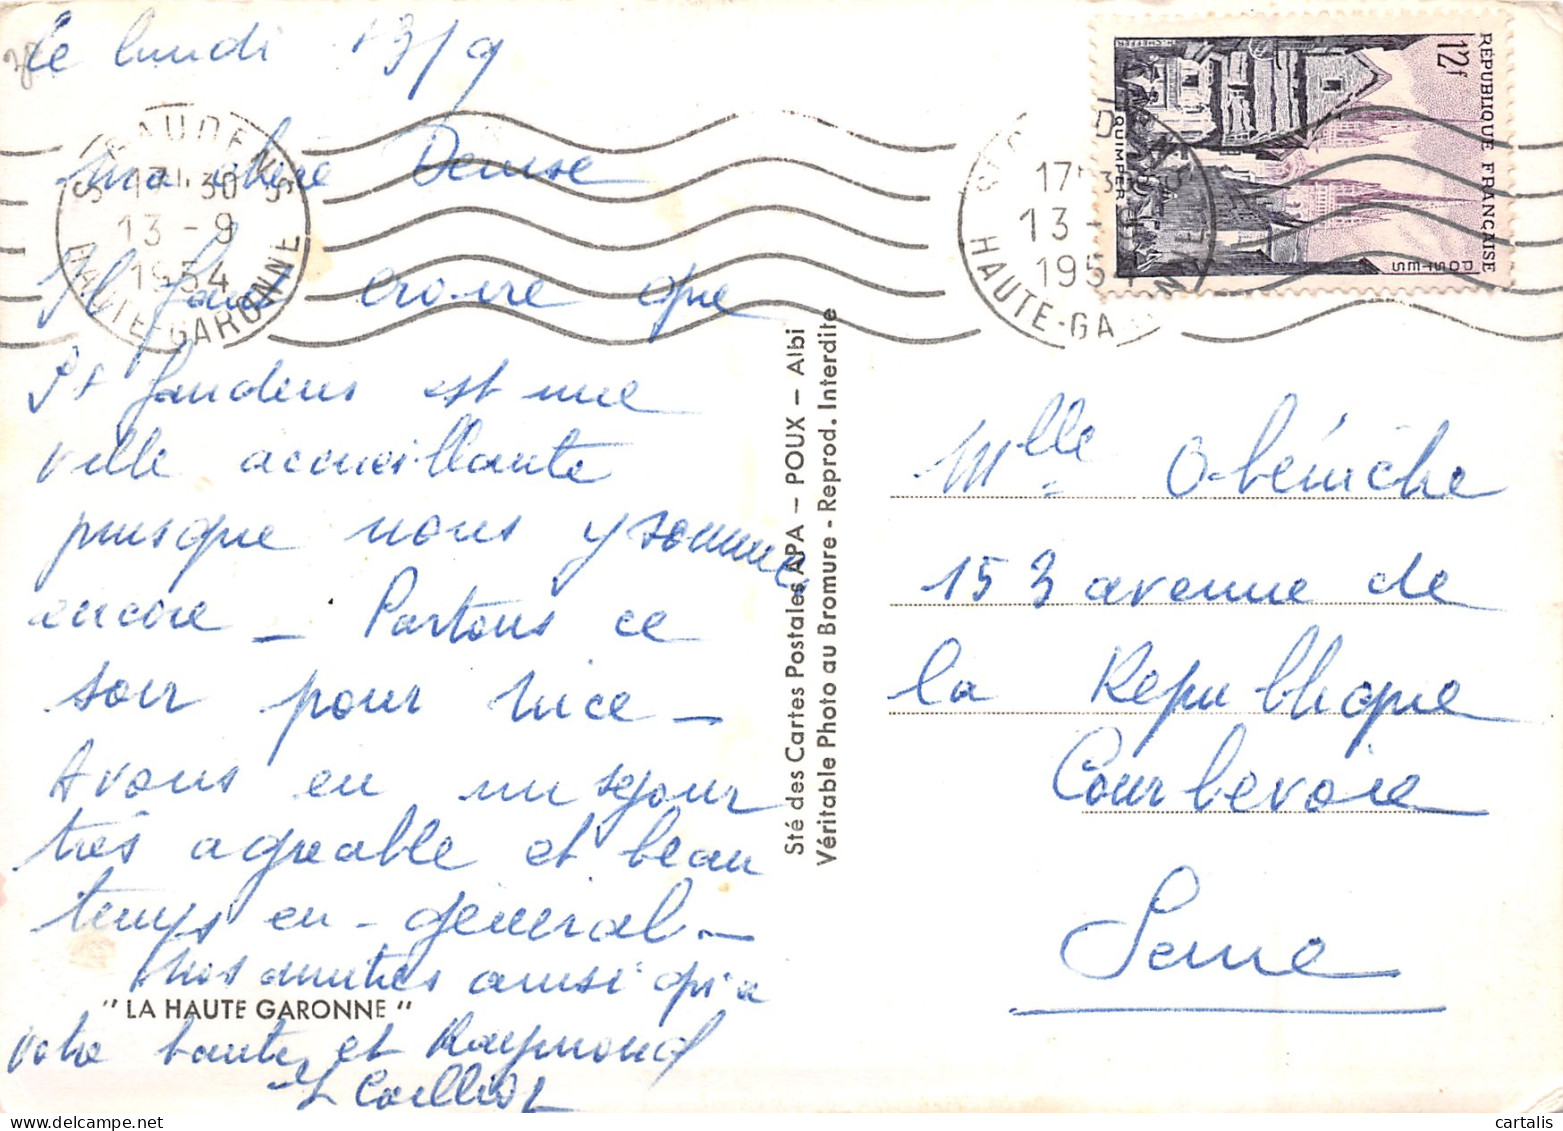 Le lundi 13/9
Ma chère Denise
Il faut croire que
St Gaudens est une
ville accueillante
puisque nous y sommes
encore - Partons ce
soir pour Nice -
Avons eu un séjour
très agréable et beau
temps en-général -
Mes amitiés ainsi qu'a
votre tante et Raymond
"LA HAUTE GARONNE"
Sté des Cartes Postales APA - POUX - Albi
Véritable Photo au Bromure - Reprod. Interdite
ST GAUDENS
17H30
13-9
1954
HAUTE-GARONNE
17H30
13-
195
HAUTE-GA NNE
RÉPUBLIQUE FRANÇAISE
12f
POSTES
QUIMPER
H. CHEFFER
Mlle Obéniche
153 avenue de
la République
Courbevoie
Seine
cartalis